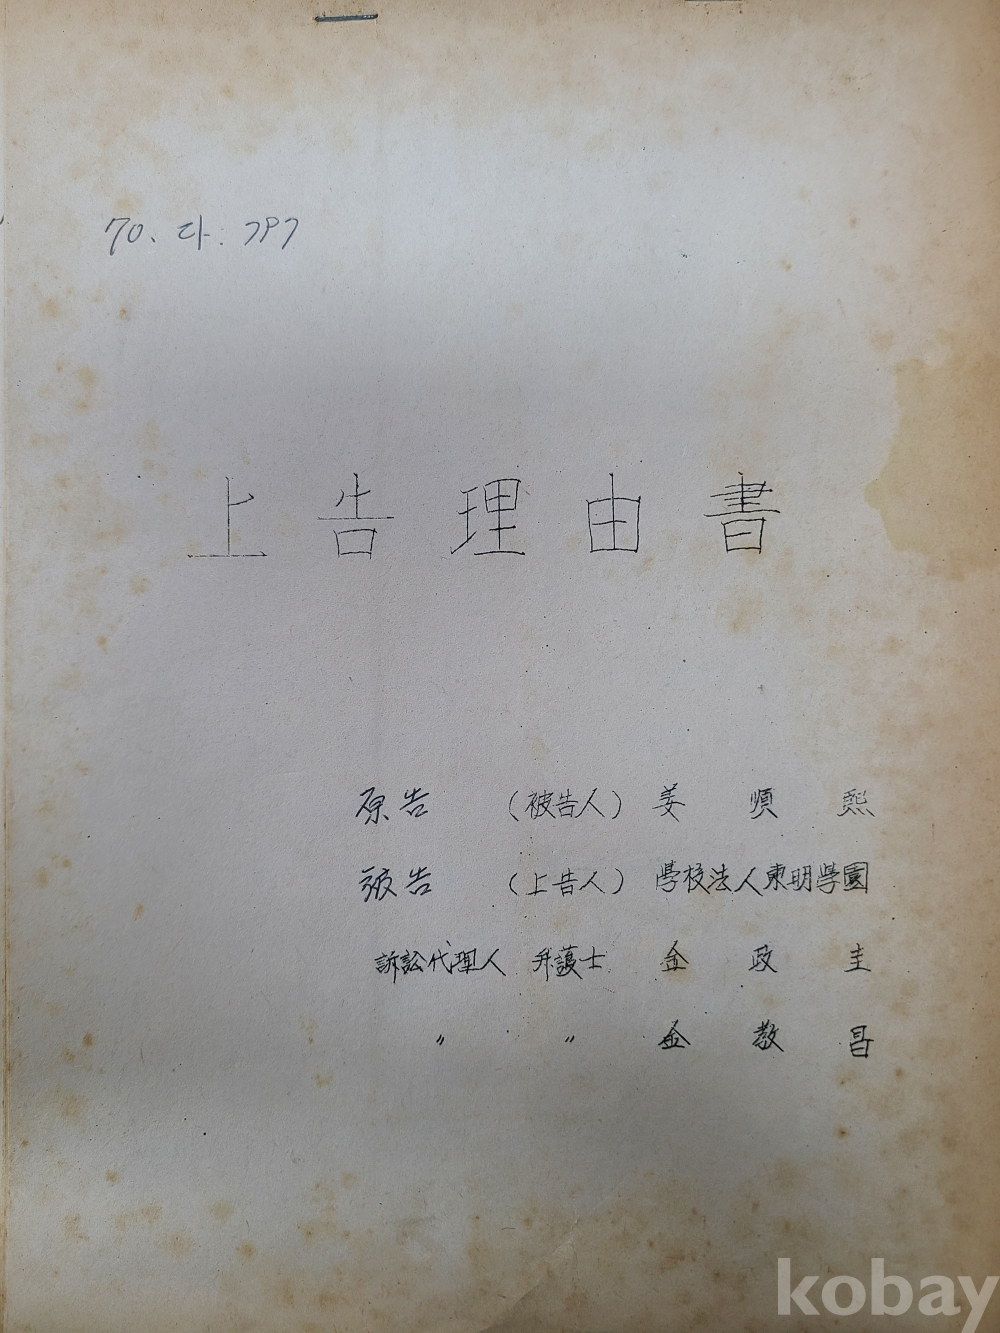 70. 다. 797
上告理由書
原告 (被告人) 姜順熙
被告 (上告人) 學校法人東明學園
訴訟代理人 弁護士 金政圭
〃 〃 金敎昌
kobay